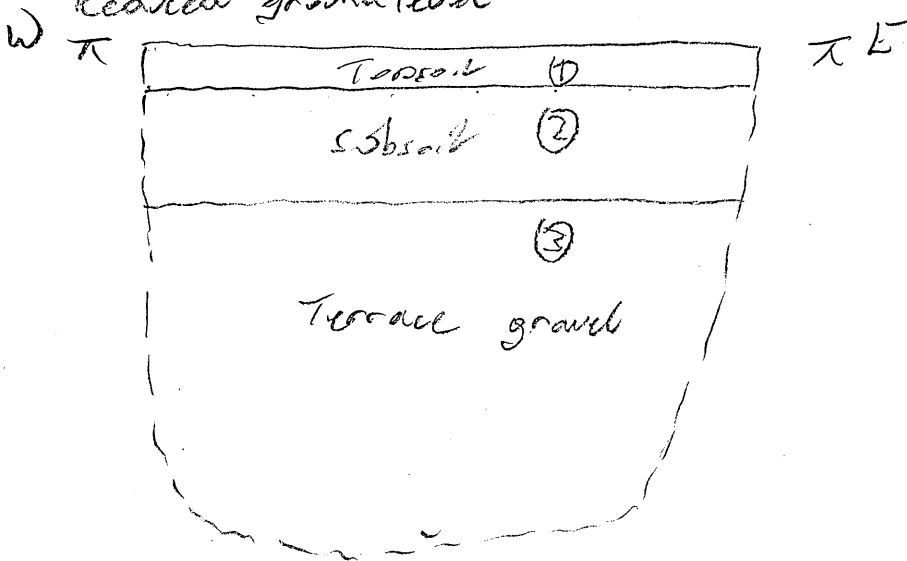 Reduced ground level
W E
Topsoil ①
Subsoil ②
③
Terrace gravel